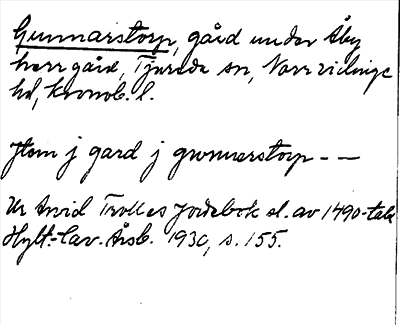 Gunnarstorp, gård under Åby
herrgård, Tjureda sn, Norrvidinge
hd, Kronob. l.
Jtem j gard j gwnnerstorp - -
Ur Arvid Trolles Jordebok sl. av 1490-tale
Hylt.-Cav. Årsb. 1930, s. 155.